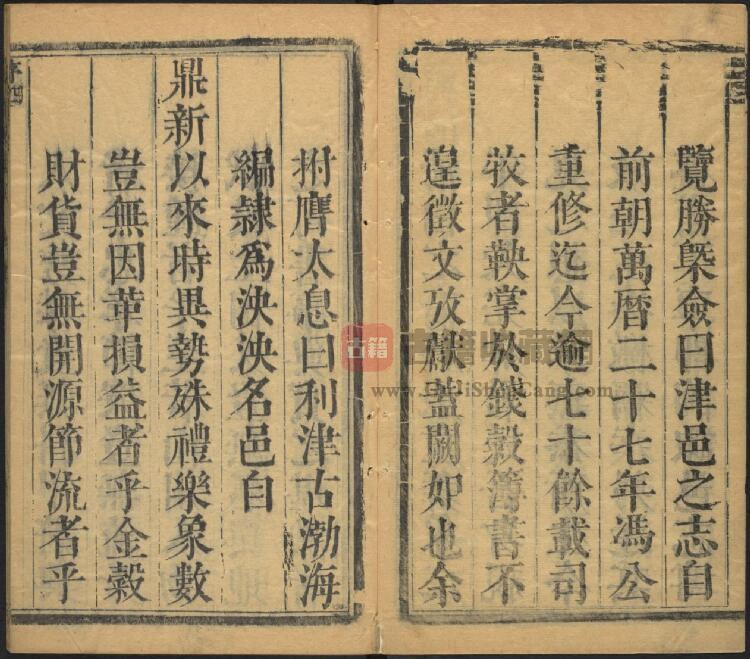 覽勝槩僉曰津邑之志自
前朝萬曆二十七年馮公
重修迄今逾七十餘載司
牧者鞅掌於錢穀簿書不
遑徵文攷獻蓋闕如也余
拊膺太息曰利津古渤海
編隷爲泱泱名邑自
鼎新以來時異勢殊禮樂象數
豈無因革損益者乎金穀
財貨豈無開源節流者乎
古籍